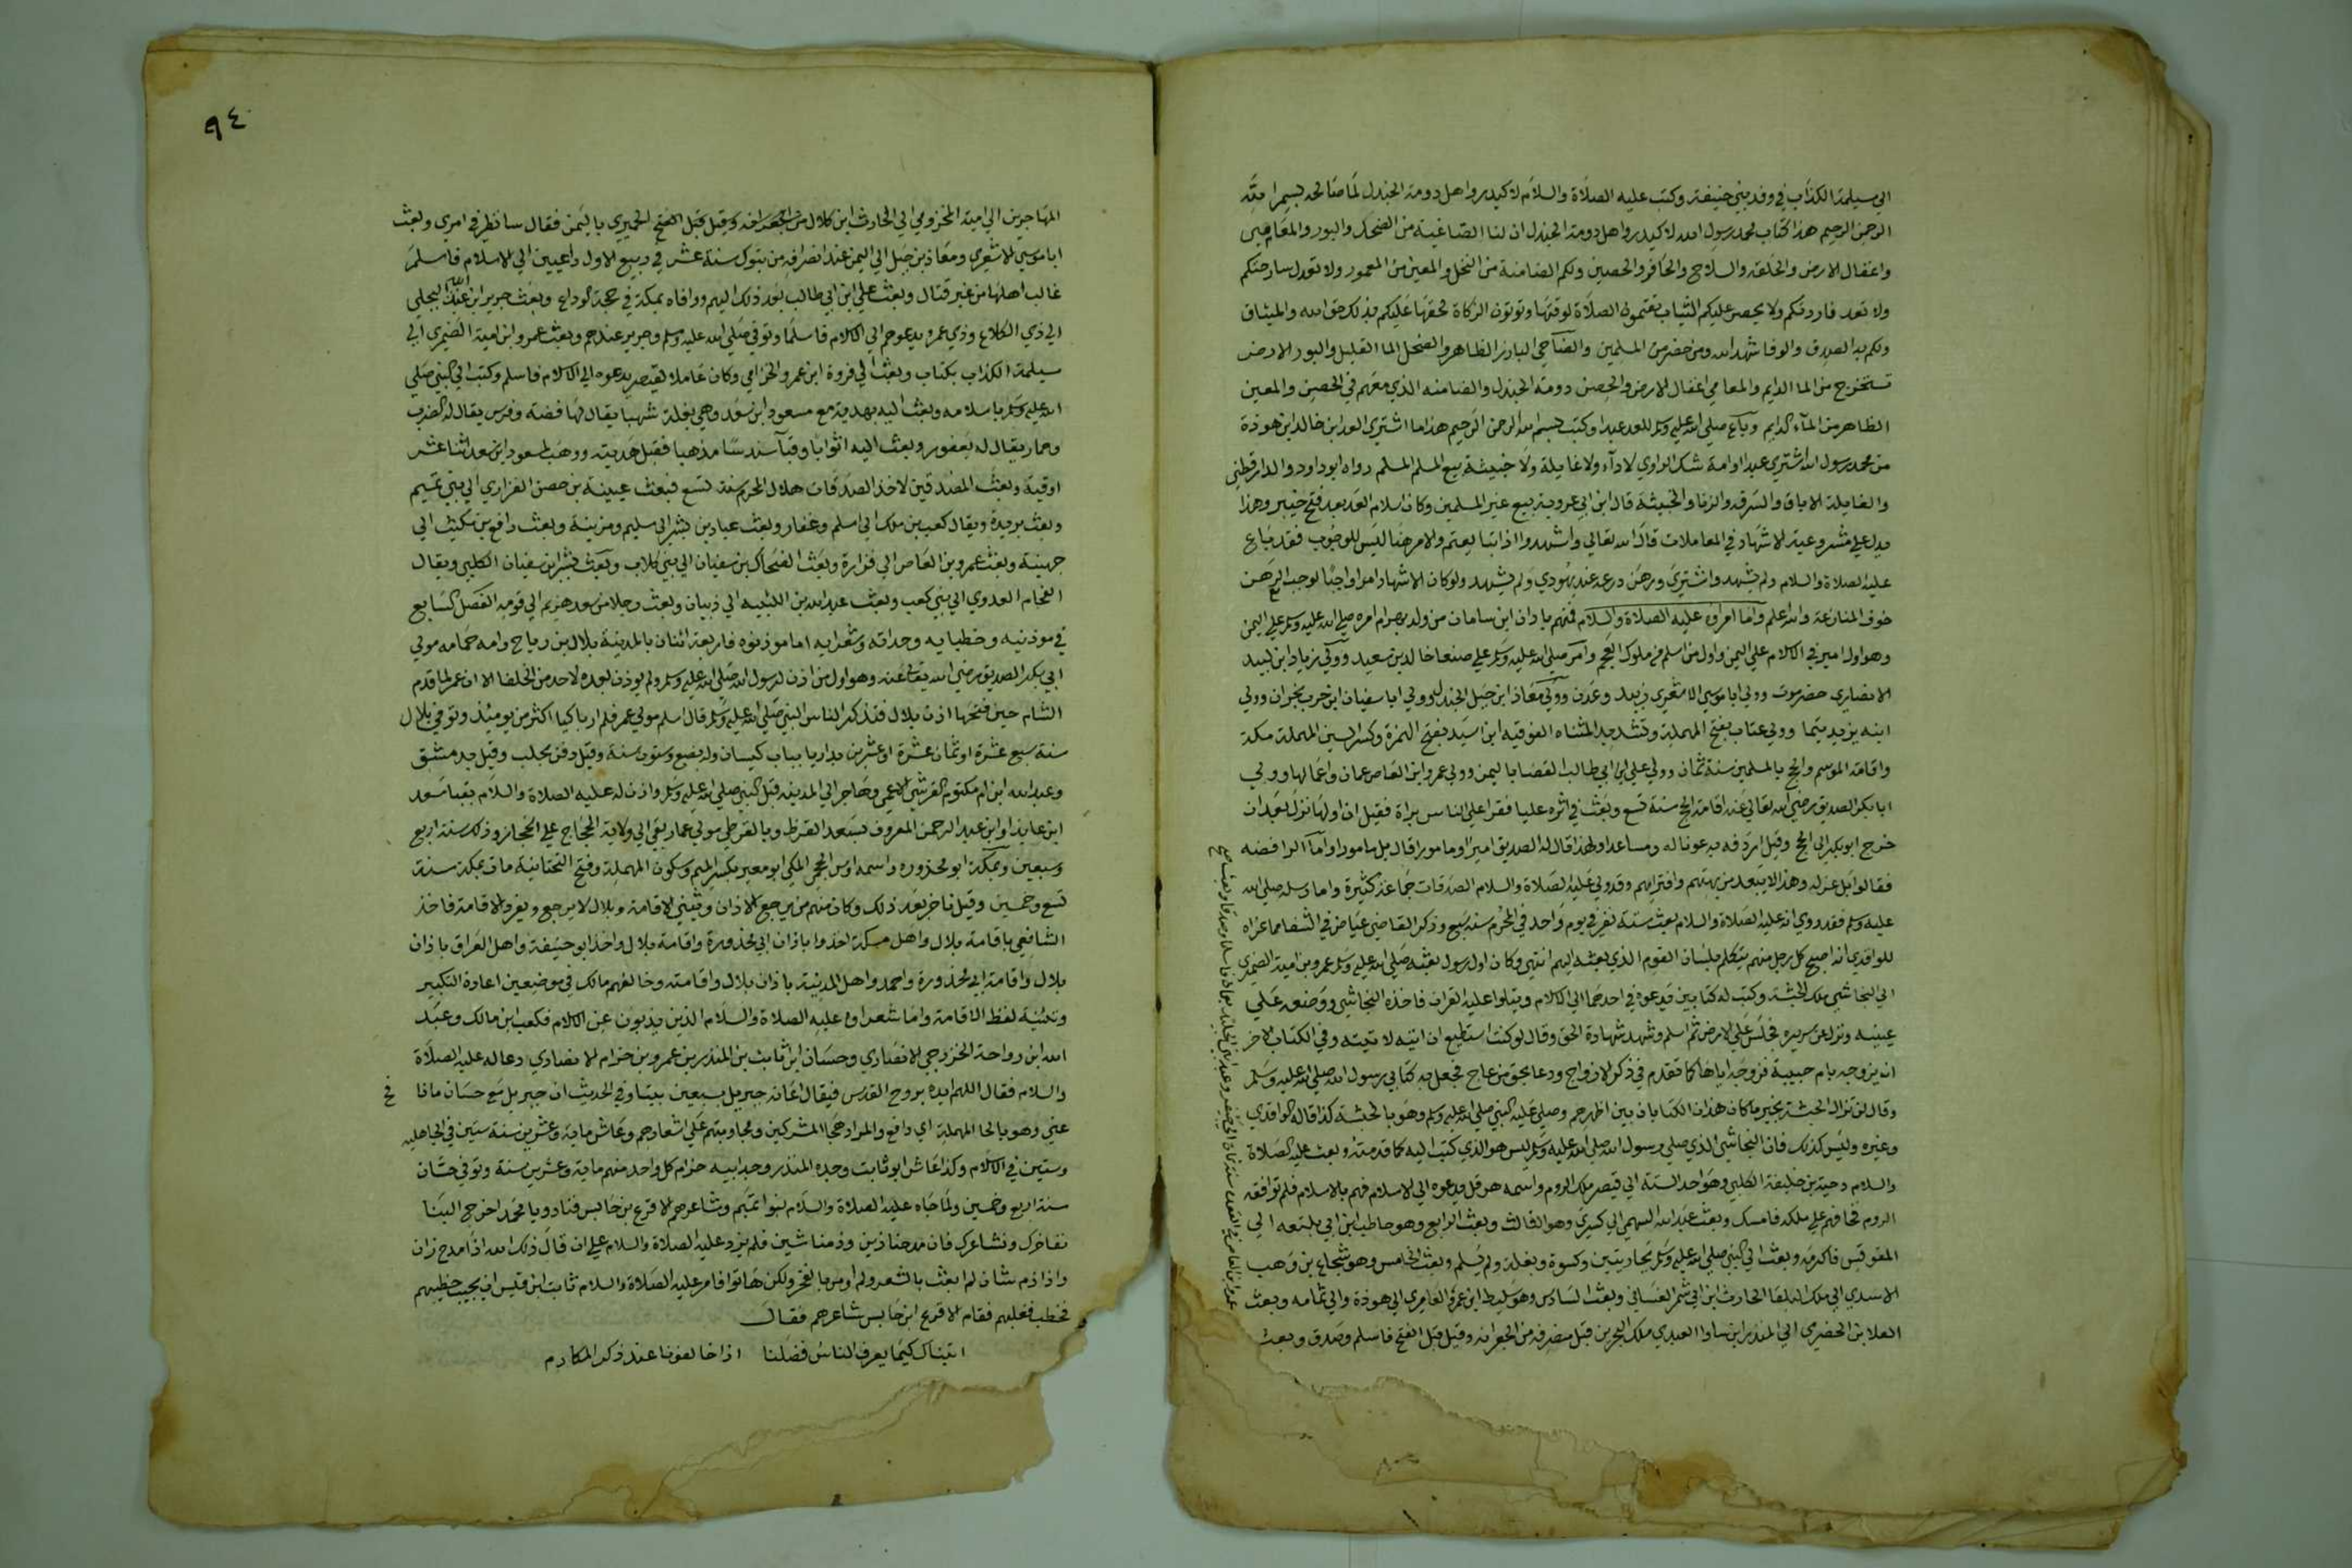 الي مسيلمة الكذاب في وفد بني حنيفة وكتب عليه الصلاة والسلام لاكيدر واهل دومة الجندل لما صالحه بسم الله
الرحمن الرحيم هذا كتاب محمد رسول الله لاكيدر واهل دومة الجندل ان لنا الضاحية من الضحل والبور والمعامي
واغفال الارض والحلقة والسلاح والحافر والحصين ولكم الضامنة من النخل والمعين من المعمور ولا تعدل سارحتكم
ولا تعد فاردتكم ولا يحصر عليكم الثبات تقيمون الصلاة لوقتها وتوتون الزكاة بحقها عليكم بذلك حق الله والميثاق
ولكم به الصدق والوفا شهد الله ومن حضر من المسلمين والضاحي البارز الظاهر والضحل الما القليل والبور الارض
تستخرج من الما الدايم والمعامي اغفال الارض والحصن دومة الجندل والضامنه الذي معهم في الحصن والمعين
الظاهر من المآء الدايم وباع صلى الله عليه وسلم للعد عبدا وكتب بسم الله الرحمن الرحيم هذا ما اشترى العدا بن خالد ابن هوذة
من محمد رسول الله اشتري عبدا او امة شك الراوي لا دآء ولا غايلة ولا خبيثة بيع المسلم المسلم رواه ابو داود والدارقطني
والغايلة الاباق والسرقه والزنا والخبيثة قال ابن ابي عروبة بيع غير المسلمين وكان اسلام العد بعد فتح خيبر وهذا
يدل علي مشروعية الاشهاد في المعاملات قال الله تعالي واشهدوا اذا تبايعتم والامر هنا ليس للوجوب فقد باع
عليه الصلاة والسلام ولم يشهد واشتري ورهن درعه عند يهودي ولم يشهد ولو كان الاشهاد امرا واجبا لوجب الرهن
خوف المنازعة والله اعلم واما امراوه عليه الصلاة والسلام فمنهم باذان ابن ساسان من ولد بهرام امره صلي الله عليه وسلم علي اليمن
وهو اول امير في الاسلام علي اليمن واول من اسلم من ملوك العجم وامر صلي الله عليه وسلم علي صنعا خالد بن سعيد وولي زياد ابن لبيد
الانصاري حضرموت وولي ابا موسي الاشعري زبيد وعدن وولي معاذ ابن جبل الجند وولي ابا سفيان ابن حرب نجران وولي
ابنه يزيد تيما وولي عتاب بفتح المهملة وتشديد المثناه الفوقيه ابن اسيد بفتح الهمزة وكسر السين المهملة مكة
واقامة الموسم والحج بالمسلمين سنة ثمان وولي علي ابن ابي طالب القضا باليمن وولي عمرو ابن العاص عمان واعمالها وولي
ابا بكر الصديق رضي الله تعالي عنه اقامة الحج سنة تسع وبعث في اثره عليا فقرا علي الناس براة فقيل ان اولها نزل بعد ان
خرج ابو بكر الي الحج وقيل اردفه به عونا له ومساعدا ولهذا قال له الصديق امير او مامور قال بل مامور واما الرافضه
فقالوا بل عزله وهذا لا يبعد من بهتهم وافترايهم وقد ولي عليه الصلاة والسلام الصدقات جماعة كثيرة واما رسله صلي الله
عليه وسلم فقد روي انه عليه الصلاة والسلام بعث ستة نفر في يوم واحد في المحرم سنة سبع وذكر القاضي عياض في الشفا مما عزاه
للواقدي انه اصبح كل رجل منهم يتكلم بلسان القوم الذي بعثه اليهم انتهي وكان اول رسول بعثه صلي الله عليه وسلم عمرو بن امية الضمري
الي النجاشي ملك الحبشة وكتب له كتابين يدعوه في احدهما الي الاسلام ويتلوا عليه القران فاخذه النجاشي ووضعه علي
عينيه ونزل عن سريره فجلس علي الارض ثم اسلم وشهد شهادة الحق وقال لو كنت استطيع ان اتيه لاتيته وفي الكتاب الاخر
ان يزوجه بام حبيبة فزوجه اياها كما تقدم في ذكر الازواج ودعا بحق من عاج فجعل فيه كتابي رسول الله صلي الله عليه وسلم
وقال لن تزال الحبشة بخير ما كان هذان الكتابان بين اظهرهم وصلي عليه النبي صلي الله عليه وسلم وهو بالحبشة كذا قاله الواقدي
وغيره وليس كذلك فان النجاشي الذي صلي رسول الله صلي الله عليه وسلم ليس هو الذي كتب اليه كما قدمته وبعث عليه الصلاة
والسلام دحية بن خليفة الكلبي وهو احد الستة الي قيصر ملك الروم واسمه هرقل يدعوه الي الاسلام فهم بالاسلام فلم توافقه
الروم فخافهم علي ملكه فامسك وبعث عبد الله السهمي الي كسري وهو الثالث وبعث الرابع وهو حاطب ابن ابي بلتعه الي
المقوقس فاكرمه وبعث الي النبي صلي الله عليه وسلم بجاريتين وكسوة وبغلة ولم يسلم وبعث الخامس وهو شجاع بن وهب
الاسدي الي ملك البلقا الحارث ابن ابي شمر الغساني وبعث السادس وهو سليط ابن عمرو العامري الي هوذة والي ثمامه وبعث
العلا بن الحضرمي الي المنذر ابن ساوا العبدي ملك البحرين قبل منصرفه من الجعرانه وقيل قبل الفتح فاسلم وصدق وبعث
٩٤
المهاجر بن ابي امية المخزومي الي الحارث ابن كلال وقيل قبل الفتح الحميري باليمن فقال سانظر في امري وبعث
ابا موسي الاشعري ومعاذ بن جبل الي اليمن عند انصرافه من تبوك سنة عشر في ربيع الاول داعيين الي الاسلام فاسلم
غالب اهلها من غير قتال وبعث علي ابن ابي طالب بعد ذلك اليهم ووافاه بمكة في حجة الوداع وبعث جرير ابن عبد الله البجلي
الي ذي الكلاع وذي عمرو يدعوهم الي الاسلام فاسلما وتوفي صلي الله عليه وسلم وجرير عندهم وبعث عمرو ابن امية الضمري الي
مسيلمة الكذاب بكتاب وبعث الي فروة ابن عمرو الجذامي وكان عاملا لقيصر يدعوه الي الاسلام فاسلم وكتب الي النبي صلي
الله عليه وسلم باسلامه وبعث اليه بهدية مع مسعود ابن سعد وهي بغلة شهبا يقال لها فضة وفرس يقال له الضرب
وحمار يقال له يعفور وبعث اليه اثوابا وقبآ سندسا مذهبا فقبل هديته ووهب لمسعود ابن سعد اثنا عشر
اوقية وبعث المصدقين لاخذ الصدقات هلال المحرم سنة تسع فبعث عيينة بن حصن الفزاري الي بني تميم
وبعث بريدة ويقال كعب بن ملك الي اسلم وغفار وبعث عباد بن بشر الي سليم ومزينة وبعث رافع بن مكيث الي
جهينة وبعث عمرو بن العاص الي فزارة وبعث الضحاك بن سفيان الي بني كلاب وبعث بشر ابن سفيان الكلبي ويقال
النحام العدوي الي بني كعب وبعث عبد الله بن اللتيبه الي ذبيان وبعث رجلا من سعد هزيم الي قومه الفصل السابع
في موذنيه وخطبايه وحداته وشعرايه اما موذنوه فاربعة اثنان بالمدينة بلال بن رباح وامه حمامه مولي
ابي بكر الصديق رضي الله تعالي عنه وهو اول من اذن لرسول الله صلي الله عليه وسلم ولم يوذن بعده لاحد من الخلفا الا ان عمر لما قدم
الشام حين فتحها اذن بلال فتذكر الناس النبي صلي الله عليه وسلم قال اسلم مولي عمر فلم ار باكيا اكثر من يوميذ وتوفي بلال
سنة سبع عشرة او ثمان عشرة او عشرين بداريا بباب كيسان وله بضع وستون سنة وقيل دفن بحلب وقيل بدمشق
وعبد الله ابن ام مكتوم القرشي الاعمي وهاجر الي المدينة قبل النبي صلي الله عليه وسلم واذن له عليه الصلاة والسلام بقبا سعد
ابن عايذ او ابن عبد الرحمن المعروف بسعد القرظ وبالقرظي مولي عمار بقي الي ولاية الحجاج علي الحجاز وذلك سنة اربع
وسبعين وبمكة ابو محذوره واسمه اوس الجمحي المكي ابو معير بكسر الميم وسكون المهملة وفتح التحتانية مات بمكة سنة
تسع وخمسين وقيل تاخر بعد ذلك وكان منهم من يرجع الاذان ويثني الاقامة وبلال لا يرجع ويفرد الاقامة فاخذ
الشافعي باقامة بلال واهل مكة اخذوا باذان ابي محذورة واقامة بلال واخذ ابو حنيفة واهل العراق باذان
بلال واقامة ابي محذورة واحمد واهل المدينة باذان بلال واقامته وخالفهم مالك في موضعين اعادة التكبير
وتثنية لفظ الاقامة واما شعراوه عليه الصلاة والسلام الذين يذبون عن الاسلام فكعب ابن مالك وعبد
الله ابن رواحة الخزرجي الانصاري وحسان ابن ثابت بن المنذر بن عمرو بن حرام الانصاري دعا له عليه الصلاة
والسلام فقال اللهم ايده بروح القدس فيقال اعانه جبريل بسبعين بيتا وفي الحديث ان جبريل مع حسان ما نافح
عني وهو بالحا المهملة اي دافع والمراد هجا المشركين ومجاوبتهم علي اشعارهم وعاش ماية وعشرين سنة ستين في الجاهلية
وستين في الاسلام وكذا عاش ابو ثابت وجده المنذر وجد ابيه حرام كل واحد منهم ماية وعشرين سنة وتوفي حسان
سنة اربع وخمسين ولما جاه عليه الصلاة والسلام بنوا تميم وشاعرهم الاقرع بن حابس فنادوه يا محمد اخرج الينا
نفاخرك ونشاعرك فان مدحنا زين وذمنا شين فلم يزد عليه الصلاة والسلام علي ان قال ذلك الله اذا مدح زان
واذا ذم شان لم ابعث بالشعر ولم اومر بالفخر ولكن هاتوا فامر عليه الصلاة والسلام ثابت ابن قيس ان يجيب خطيبهم
فخطب فغلبهم فقام الاقرع ابن حابس شاعرهم فقال
اتيناك كيما يعرف الناس فضلنا اذا خالفونا عند ذكر المكارم